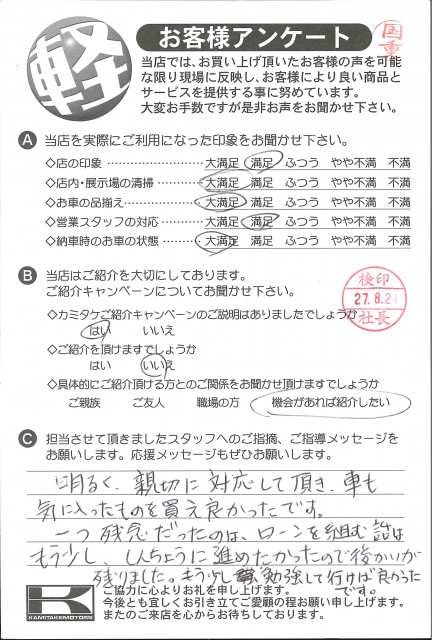 軽
お客様アンケート
国重
当店では、お買い上げ頂いたお客様の声を可能
な限り現場に反映し、お客様により良い商品と
サービスを提供する事に努めています。
大変お手数ですが是非お声をお聞かせ下さい。
A 当店を実際にご利用になった印象をお聞かせ下さい。
◇店の印象 大満足 満足 ふつう やや不満 不満
◇店内・展示場の清掃 大満足 満足 ふつう やや不満 不満
◇お車の品揃え 大満足 満足 ふつう やや不満 不満
◇営業スタッフの対応 大満足 満足 ふつう やや不満 不満
◇納車時のお車の状態 大満足 満足 ふつう やや不満 不満
B 当店はご紹介を大切にしております。
ご紹介キャンペーンについてお聞かせ下さい。
検印
27.8.24
社長
◇カミタケご紹介キャンペーンのご説明はありましたでしょうか
はい いいえ
◇ご紹介を頂けますでしょうか
はい いいえ
◇具体的にご紹介頂ける方とのご関係をお聞かせ頂けますでしょうか
ご親族 ご友人 職場の方 機会があれば紹介したい
C 担当させて頂きましたスタッフへのご指摘、ご指導メッセージを
お願いします。応援メッセージもぜひお願いします。
明るく、親切に対応して頂き、車も
気に入ったものを買え良かったです。
一つ残念だったのは、ローンを組む話は
もう少し、しんちょうに進めたかったので後かいが
残りました。もう少し勉強して行けば良かった
です。
K
KAMITAKEMOTORS
ご協力に心よりお礼を申し上げます。
今後とも宜しくお引き立てご愛顧の程お願い申し上げます。
またのご来店を心からお待ちしております。